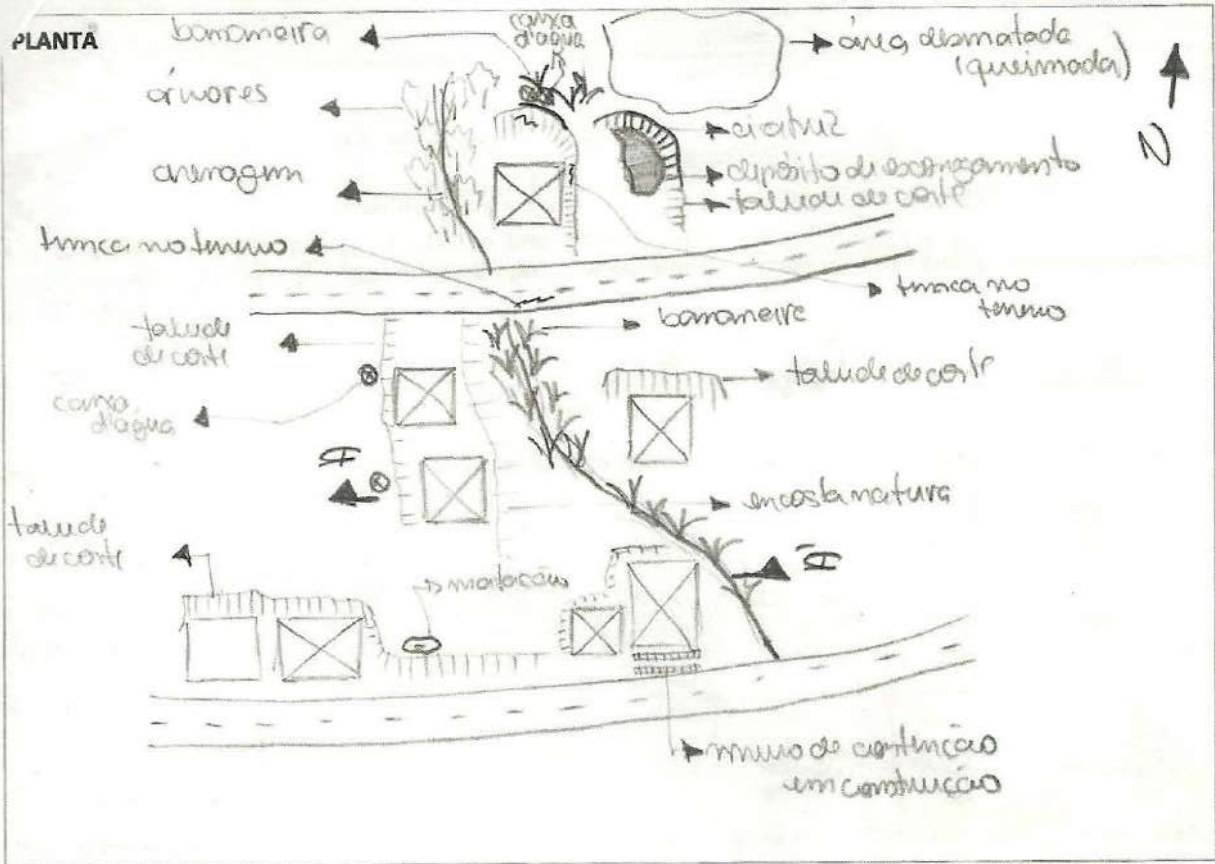 PLANTA
bananeira
caixa
d'água
área desmatada
(queimada)
árvores
N
cicatriz
drenagem
depósito de escorregamento
talude de corte
trinca no terreno
trinca no
terreno
bananeira
talude
de corte
talude de corte
caixa
d'água
encosta natural
talude
de corte
matacão
muro de contenção
em construção